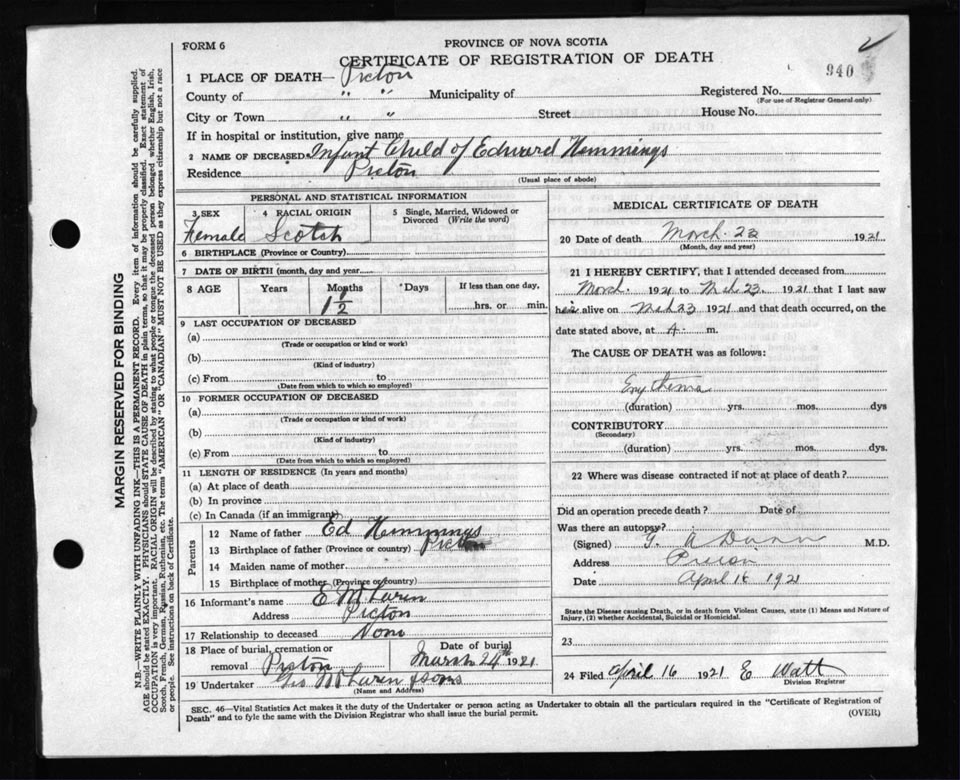 FORM 6
PROVINCE OF NOVA SCOTIA
CERTIFICATE OF REGISTRATION OF DEATH
940
1 PLACE OF DEATH— Picton
County of " " Municipality of Registered No.
(For use of Registrar General only)
City or Town " " Street House No.
If in hospital or institution, give name
2 NAME OF DECEASED Infant Child of Edward Hemmings
Residence Picton
(Usual place of abode)
PERSONAL AND STATISTICAL INFORMATION
3 SEX 4 RACIAL ORIGIN 5 Single, Married, Widowed or Divorced (Write the word)
Female Scotch
6 BIRTHPLACE (Province or Country)
7 DATE OF BIRTH (month, day and year)
8 AGE Years Months Days If less than one day,
1 1/2 hrs. or min.
9 LAST OCCUPATION OF DECEASED
(a)
(Trade or occupation or kind or work)
(b)
(Kind of industry)
(c) From to
(Date from which to which so employed)
10 FORMER OCCUPATION OF DECEASED
(a)
(Trade or occupation or kind of work)
(b)
(Kind of industry)
(c) From to
(Date from which to which so employed)
11 LENGTH OF RESIDENCE (In years and months)
(a) At place of death
(b) In province
(c) In Canada (if an immigrant)
Parents
12 Name of father Ed Hemmings
13 Birthplace of father (Province or country) Picton
14 Maiden name of mother
15 Birthplace of mother (Province or country)
16 Informant's name E McLaren
Address Picton
17 Relationship to deceased None
18 Place of burial, cremation or Date of burial
removal Picton March 24th 1921
19 Undertaker Geo McLaren & Sons
(Name and Address)
MEDICAL CERTIFICATE OF DEATH
20 Date of death March 23 1921
(Month, day and year)
21 I HEREBY CERTIFY, that I attended deceased from
March 1921 to Mch 23 1921 that I last saw
her alive on Mch 23 1921 and that death occurred, on the
date stated above, at A. m.
The CAUSE OF DEATH was as follows:
Erythema
(duration) yrs. mos. dys
CONTRIBUTORY
(Secondary)
(duration) yrs. mos. dys.
22 Where was disease contracted if not at place of death?
Did an operation precede death? Date of
Was there an autopsy?
(Signed) G. A Dunn M.D.
Address Picton
Date April 16 1921
State the Disease causing Death, or in death from Violent Causes, state (1) Means and Nature of
Injury, (2) whether Accidental, Suicidal or Homicidal.
23
24 Filed April 16 1921 E Watt
Division Registrar
SEC. 46—Vital Statistics Act makes it the duty of the Undertaker or person acting as Undertaker to obtain all the particulars required in the "Certificate of Registration of
Death" and to fyle the same with the Division Registrar who shall issue the burial permit.
(OVER)
MARGIN RESERVED FOR BINDING
N.B.—WRITE PLAINLY WITH UNFADING INK—THIS IS A PERMANENT RECORD. Every item of information should be carefully supplied.
AGE should be stated EXACTLY. PHYSICIANS should STATE CAUSE OF DEATH in plain terms, so that it may be properly classified. Exact statement of
OCCUPATION is very important. RACIAL ORIGIN will be described by stating to what people or tongue the deceased person belonged whether English, Irish,
Scotch, French, German, Russian, Ruthenian, etc. The terms "AMERICAN" OR "CANADIAN" MUST NOT BE USED as they express citizenship but not a race
or people. See instructions on back of Certificate.